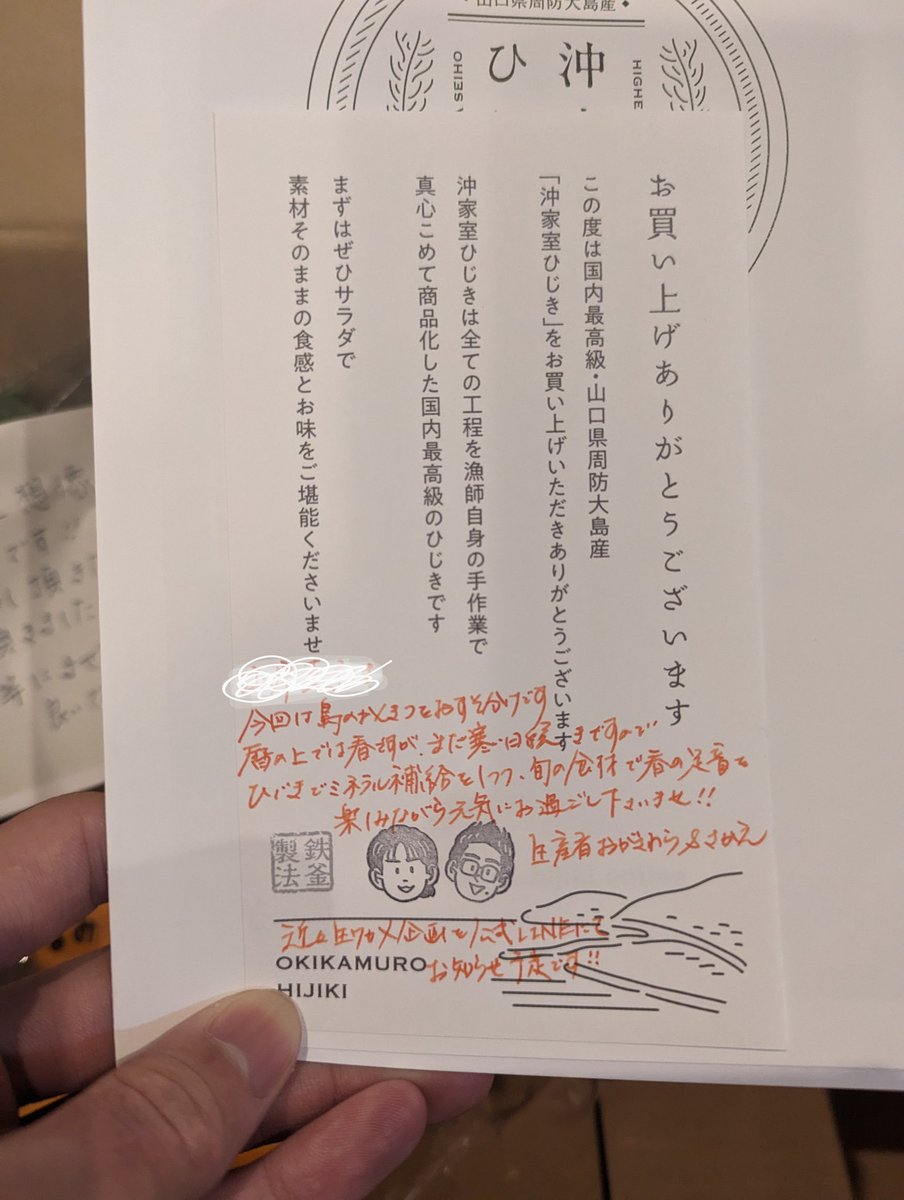 山口県周防大島産
沖
ひ
HIGHE
OHIESV
お買い上げありがとうございます
この度は国内最高級・山口県周防大島産
「沖家室ひじき」をお買い上げいただきありがとうございます
沖家室ひじきは全ての工程を漁師自身の手作業で
真心こめて商品化した国内最高級のひじきです
まずはぜひサラダで
素材そのままの食感とお味をご堪能くださいませ
今回は島のかきつをおすそ分けです
暦の上では春ですが、まだ寒い日続きますので
ひじきでミネラル補給をしつつ、旬の食材で春の足音を
楽しみながら元気にお過ごし下さいませ!!
生産者 おがわら&さかえ
鉄釜
製法
近々生ワカメ企画を公式LINEにて
お知らせ予定です!!
OKIKAMURO
HIJIKI